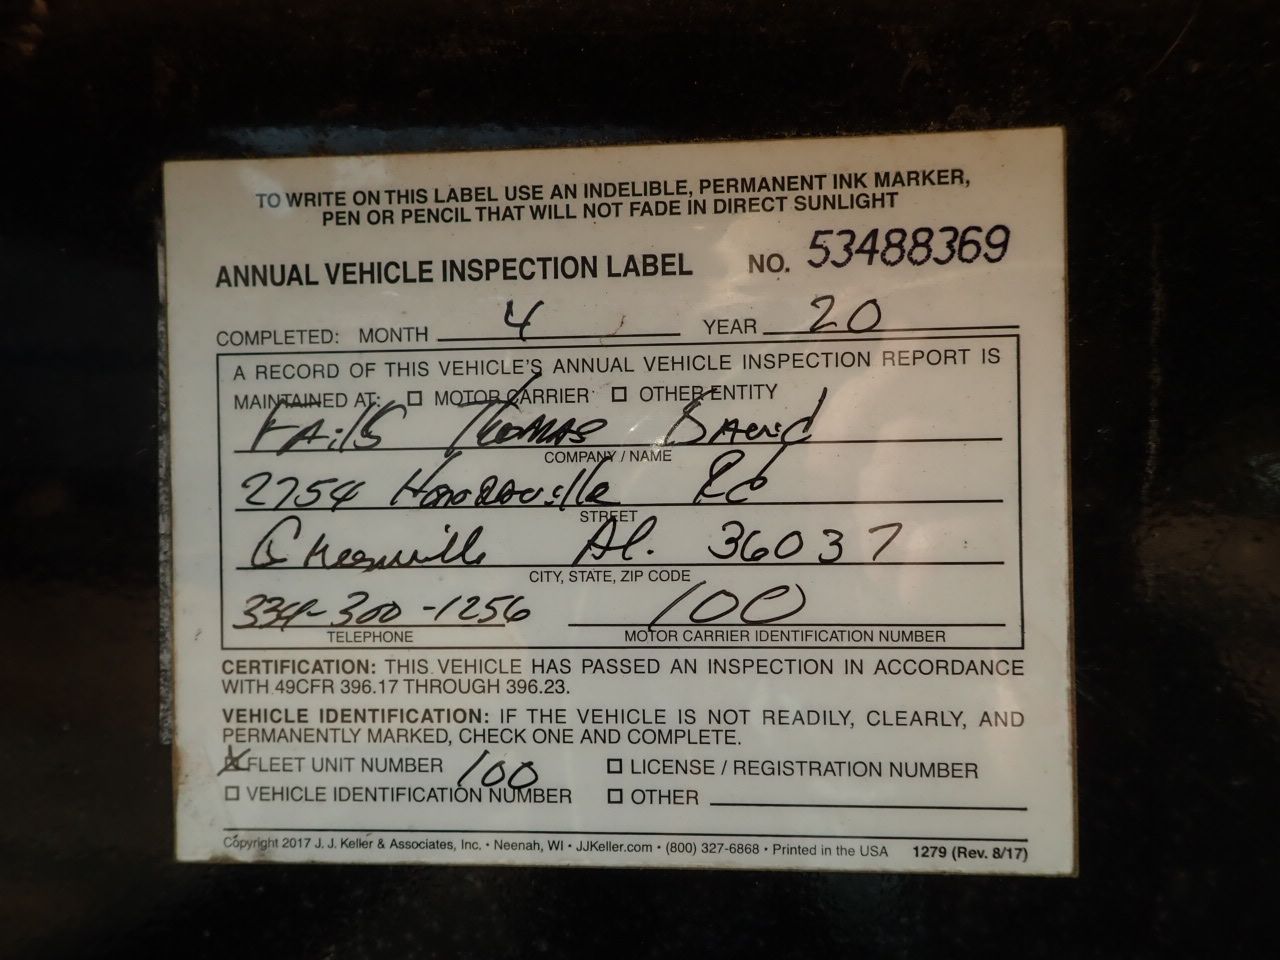 TO WRITE ON THIS LABEL USE AN INDELIBLE, PERMANENT INK MARKER,
PEN OR PENCIL THAT WILL NOT FADE IN DIRECT SUNLIGHT
ANNUAL VEHICLE INSPECTION LABEL NO. 53488369
COMPLETED: MONTH 4 YEAR 20
A RECORD OF THIS VEHICLE'S ANNUAL VEHICLE INSPECTION REPORT IS
MAINTAINED AT: ☐ MOTOR CARRIER ☐ OTHER ENTITY
FAilS THOMAS DAVID
COMPANY / NAME
2754 Honoraville Rd
STREET
Greenville Al. 36037
CITY, STATE, ZIP CODE
334-300-1256 100
TELEPHONE MOTOR CARRIER IDENTIFICATION NUMBER
CERTIFICATION: THIS VEHICLE HAS PASSED AN INSPECTION IN ACCORDANCE
WITH 49CFR 396.17 THROUGH 396.23.
VEHICLE IDENTIFICATION: IF THE VEHICLE IS NOT READILY, CLEARLY, AND
PERMANENTLY MARKED, CHECK ONE AND COMPLETE.
☒ FLEET UNIT NUMBER 100 ☐ LICENSE / REGISTRATION NUMBER
☐ VEHICLE IDENTIFICATION NUMBER ☐ OTHER
Copyright 2017 J. J. Keller & Associates, Inc. • Neenah, WI • JJKeller.com • (800) 327-6868 • Printed in the USA 1279 (Rev. 8/17)